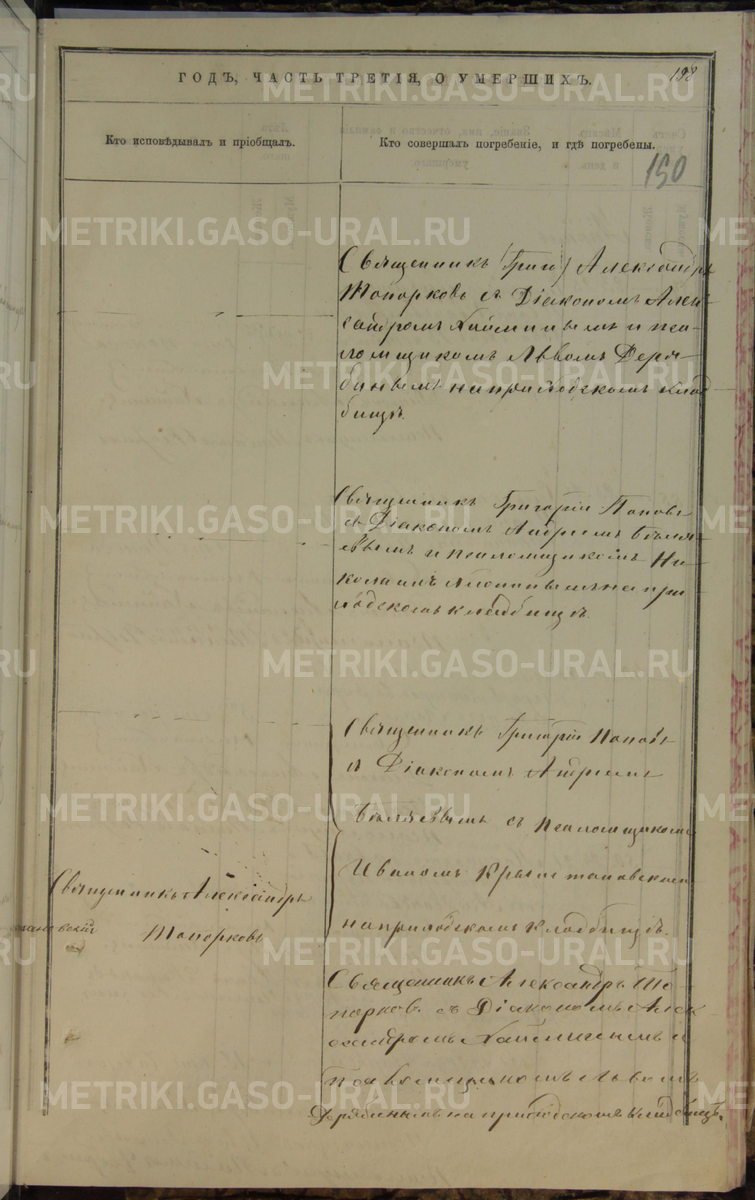 ГОДЪ, ЧАСТЬ ТРЕТІЯ, О УМЕРШИХЪ.
198
Кто исповѣдывалъ и пріобщалъ.
Кто совершалъ погребеніе, и гдѣ погребены.
150
Священникъ (Григ) Александръ
Топорковъ съ Діакономъ Алек
сандромъ и пса
ломщикомъ Львомъ Деря
бинымъ на приходскомъ клад
бищѣ.
Священникъ Григорій Поповъ
съ Діакономъ Андреемъ Бѣля
евымъ и псаломщикомъ Ни
колаемъ на при
ходскомъ кладбищѣ.
Священникъ Григорій Поповъ
съ Діакономъ Андреемъ
Бѣляевымъ съ Псаломщикомъ
Иваномъ
на приходскомъ кладбищѣ.
Священникъ Александръ
Топорковъ
Священникъ Александръ То
порковъ съ Діакономъ Алек
сандромъ и
Псаломщикомъ Львомъ
Дерябинымъ на приходскомъ кладбищѣ.
METRIKI.GASO-URAL.RU